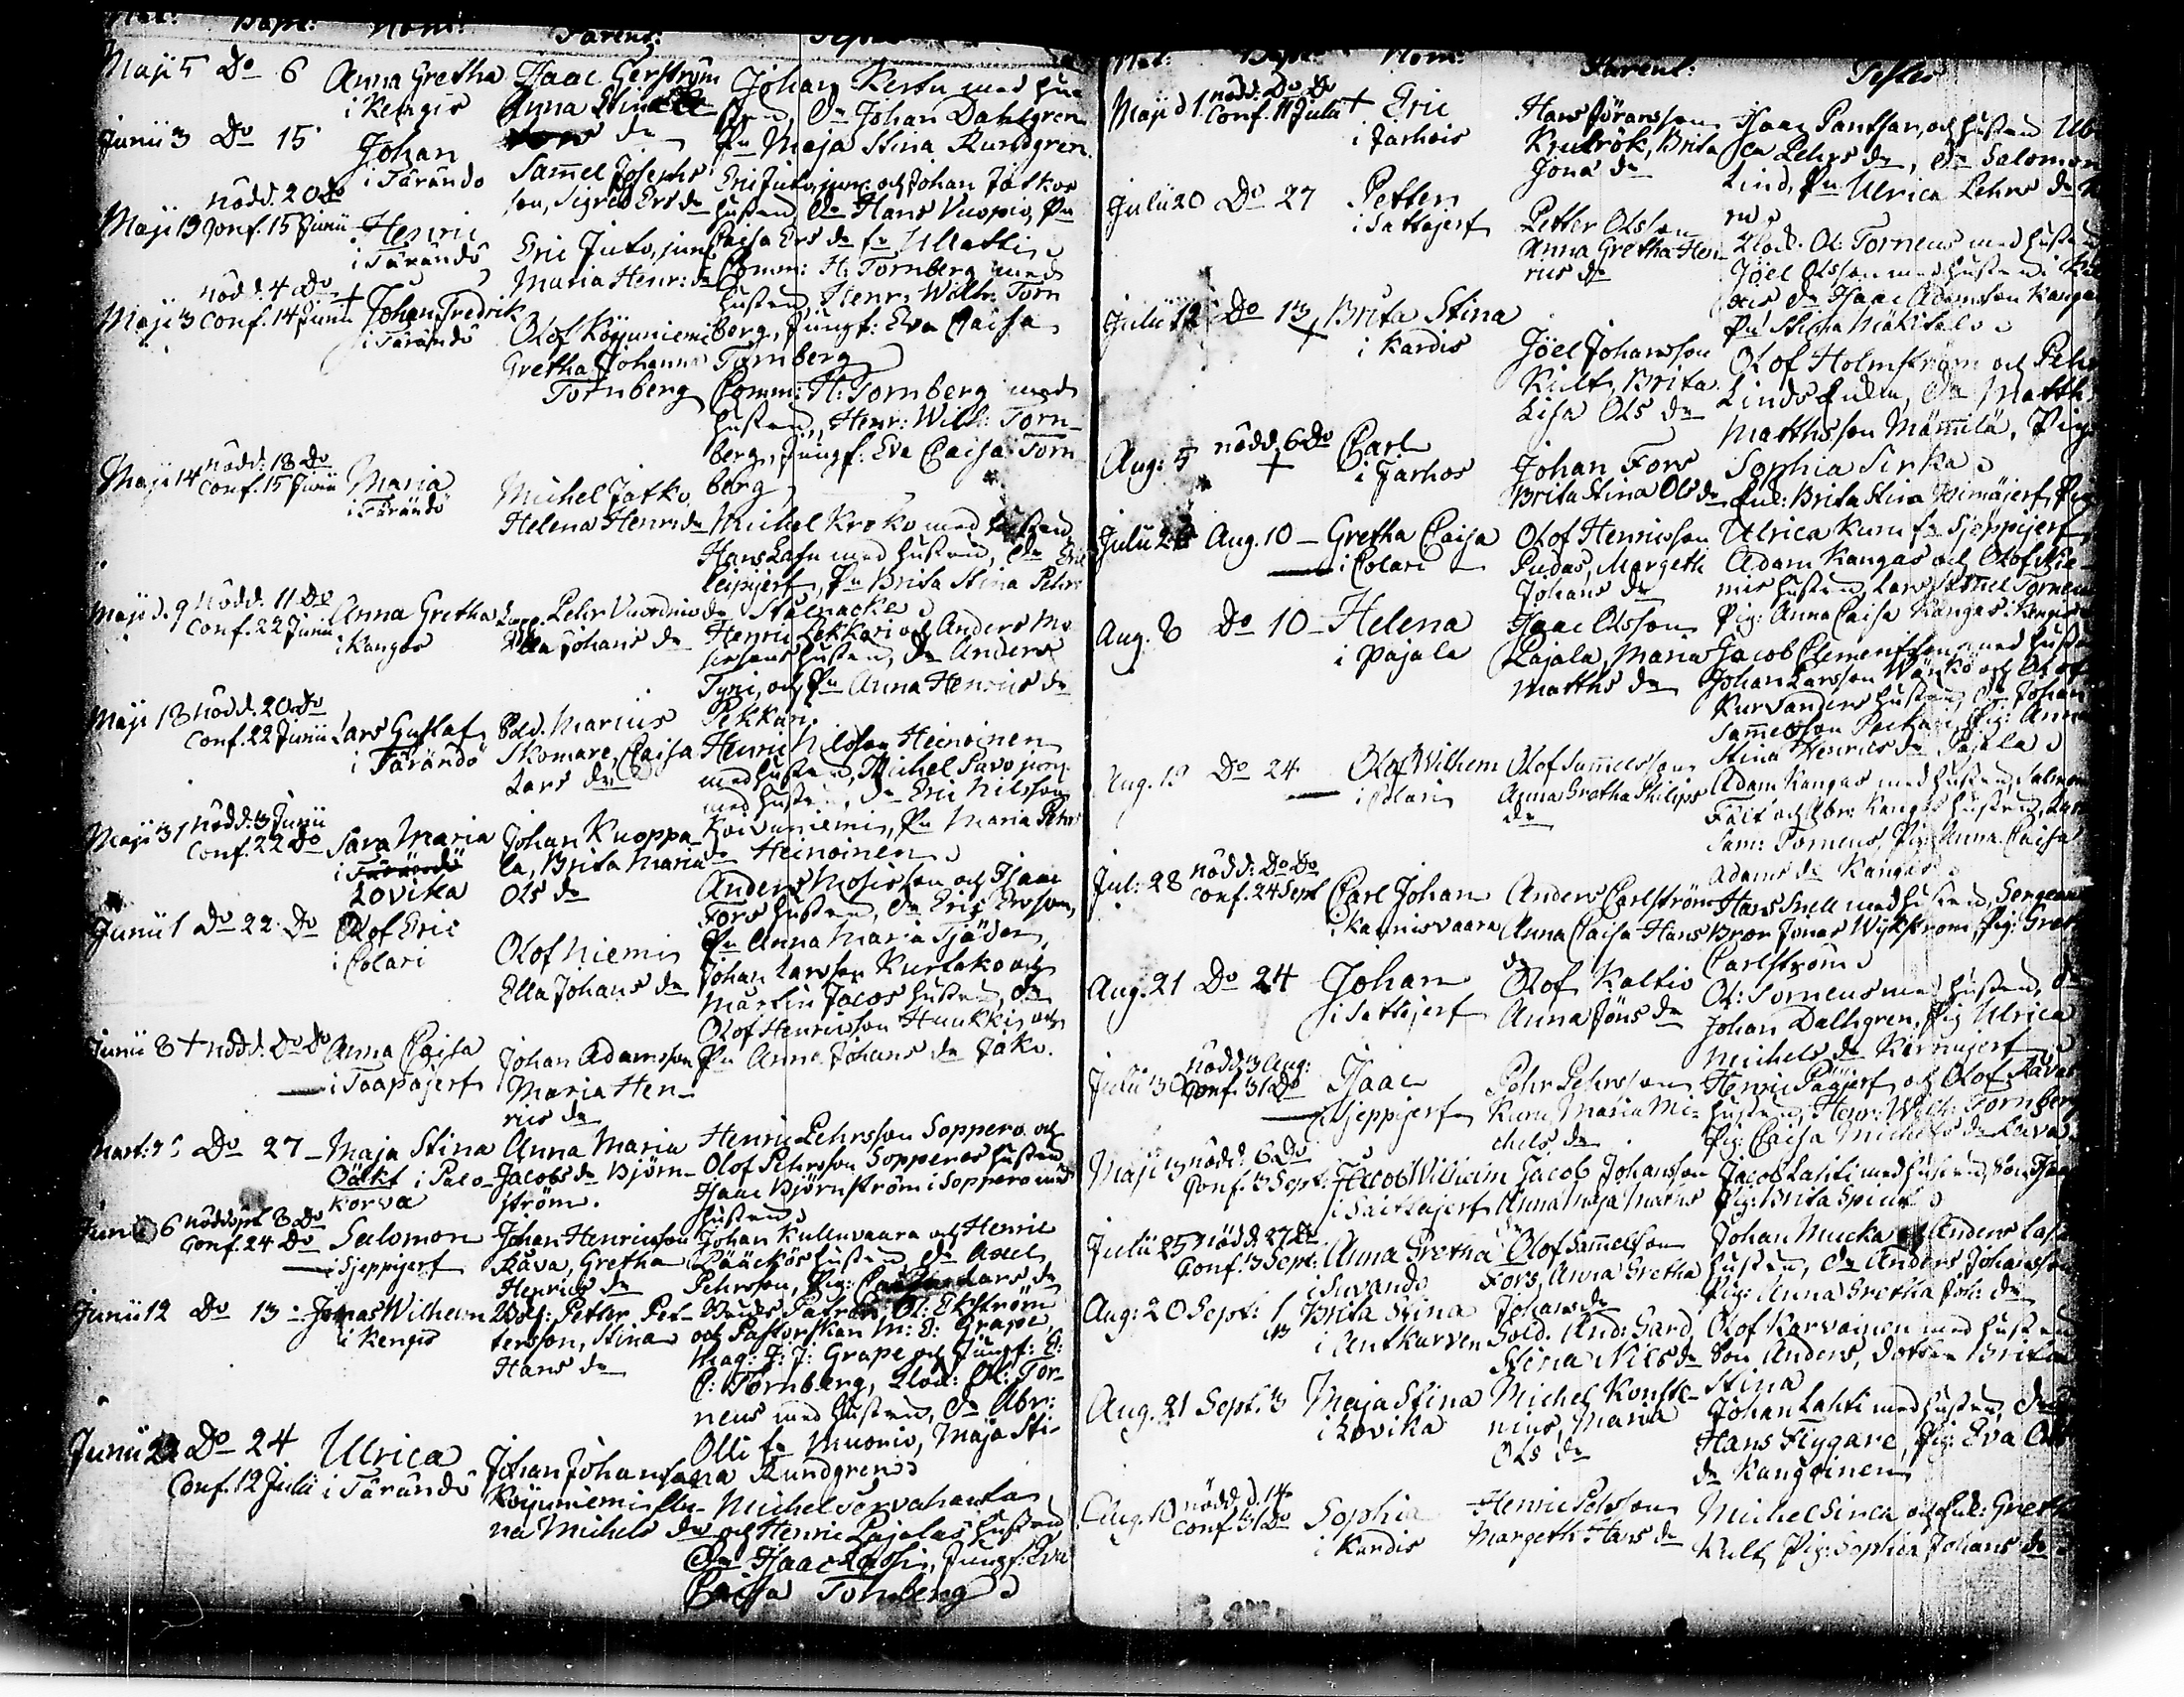 Nat: Bapt: Nom: Parent: Testes
Maji 5 Do 6 Anna Gretha i Kengis
Isaac Gerström Anna Stina
Johan Kertu med hustrun, Dr Johan Dahlgren
Pn Maja Stina Rundgren.
Junii 3 Do 15 Johan i Tärändö
Sammel Josephsson, Sigred Ersdr
Eric Juto, jun: och Johan Jatkos
hustru, Dr Hans Vuopio, Pn
Caisa Ersdr fr
Maji 19 nödd. 20 do Conf. 15 Junii Henric i Tärändö
Eric Juto, jun
Maria Henr: dr
Comm: H: Tornberg med
hustrun, Henr: Wilh: Torn
berg, Jungf: Eva Caisa
Tornberg
Maji 3 nödd. 4 Do Conf. 14 Junii + Johan Fredrik i Tärändö
Olof Köyuniemi
Gretha Johanna
Tornberg
Comm: H: Tornberg med
hustrun, Henr: Wilh: Torn-
berg, Jungf: Eva Caisa Torn-
berg
Maji 14 nödd: 18 do Conf. 15 Junii Maria i Tärändö
Michel Jatko
Helena Henrs dr
Michel Kroko med hustrun,
Hans Lafu med hustrun, Dr Eric
Leipijerf, Pn Brita Stina Pehrs
dr Stälnacke
Maji d. 9 Nödd: 11 Do Conf. 22 Junii Anna Gretha i Kangos
Lapp. Pehr Vuordnio
Ella Johans dr
Henric Pekkari och Anders Mo
sessons hustru, Dr Anders
Tyni, och Pn Anna Henrics dr
Pekkari.
Maji 18 nödd. 20 do Conf. 22 Junii Lars Gustaf i Tärändö
Sold. Marius
Skomare, Caisa
Lars dr
Henric Nilsson Heinoinen
med hustrun, Michel Savo
med hustrun, Dr Eric Nilsson
Koivuniemi, Pn Maria Pehrs
dr Heinoinen
Maji 31 nödd: 3 Junii Conf. 22 Do Sara Maria i Lovika
Johan Kuoppa-
la, Brita Maria
Ols dr
Anders Mosesson och Isaac
Fors hustru, Dr Eric Ersson,
Pn Anna Maria Tjäder
Junii 1 Do 22 Do Olof Eric i Colari
Olof Niemi
Ella Johans dr
Johan Larsson Kurtako och
Martin Jacos hustru, Dr
Olof Henricsson Huukki, och
Pn Anna Johans dr Jako.
Junii 8 + nödd: Do Do Anna Caisa i Taapajerf
Johan Adamsson
Maria Hen-
rics dr
Mart: Do 27 Maja Stina Oäkt i Palo-
korva
Anna Maria
Jacobs dr Björn-
ström.
Henric Pehrsson Soppero och
Olof Pehrsson Sopperos hustru
Isaac Björnström i Soppero med
hustru
Junii 6 nöddöpt 8 Do Conf. 24 Do Salomon i Sjeppijerf
Johan Henricsson
Kava, Gretha
Henrics dr
Johan Kullenvaara och Henric
Pääckös hustru, Dr Axel
Pehrsson, Pig: Lars dr
Junii 12 Do 13 Jonas Wilhelm i Kengis
Wolf: Petter Pet-
tersson, Stina
Hans dr
Bruks Patron Ol: Ekström
och Pastorskan M: E: Grape,
Mag: J: J: Grape och Jungf: E:
C: Tornberg, Klock: Ol: Tor-
neus med hustrun, Dr Abr:
Olli fr Muonio, Maja Sti-
na Rundgren
Junii 22 Do 24 Conf. 12 Julii Ulrica i Tärändö
Johan Johansson
Köyuniemi, An-
na Michels dr
Michel
och Henric Pajalas hustrun
Dr Isaac Lassi, Jungf: Eva
Caisa Tornberg
Nat: Bapt: Nom: Parent: Testes
Maji d. 1 nödd: Do Do Conf. 11 Julii + Eric i Jarhois
Hans Göransson
Krutrök, Brita
Jona dr
Isaac Pantsar, och hustrun Ul-
rica Pehrs dr, Dr Salomon
Lind, Pn Ulrica Pehrs dr
Julii 20 Do 27 Petter i Sattajerf
Petter Olsson
Anna Gretha Hen
rics dr
Klock. Ol: Torneus med hustrun
Jöel Olsson med hustrun i
Dr Isaac Adamsson Kangas
Pn Stina Mäkitalo
Julii 12 Do 13 + Brita Stina i Kardis
Jöel Johansson
Kult, Brita
Lisa Ols dr
Olof Holmström och Pehr
Linds Enka, Dr Matth:
Matthsson Mämmilä, Pig:
Sophia Sirka
Aug: 5 nödd. 6 Do + Carl i Jarhos
Johan Fors
Brita Stina Ols dr
Enk: Brita Stina, Pig
Ulrica Kuru fr Sjeppijerf
Julii 28 Aug. 10 Gretha Caisa i Colari
Olof Henricsson
Pudas, Margeth
Johans dr
Adam Kangas och Olof Nie-
mis hustru, Lars Samuel Torneus
Pig: Anna Caisa Kangas i Kengis
Aug. 8 Do 10 Helena i Pajala
Isaac Olsson
Pajala, Maria
Matths dr
Jacob Clementsson med hustru
Johan Larsson Wänkö och Olof
Kurvanders hustru, Dr Johan
Sammelsson, Pig: Anna
Stina Henrics dr Pajala
Aug. 19 Do 24 Olof Wilhelm i Colari
Olof Sammelsson
Anna Gretha Philips
dr
Adam Kangas med hustrun, Salmon
Fält och Abr: Kangas hustru, Lars
Sam: Torneus, Pig: Anna Caisa
Adams dr Kangas
Jul: 28 nödd: Do Do Conf. 24 Sept Carl Johan i Kaunisvaara
Anders Carlström
Anna Caisa Hans
dr
Hans Snell med hustrun, Sergean
Bror Jonas Wykström, Pig: Gret
Carlström
Aug. 21 Do 24 Johan i Sattajerf
Olof Kaltio
Anna Jöns dr
Ol: Torneus med hustrun, Dr
Johan Dalhgren, Pig Ulrica
Michels dr Kernujerf
Julii 30 nödd: 3 Aug: Conf. 31 Do Isaac i Sjeppijerf
Pehr Pehrsson
Kuru, Maria Mi-
chels dr
Henric Pääjerf och Olof Kavas
hustru, Henr: Wilh: Tornberg
Pig: Caisa Michels dr Kava
Maji nödd: 6 Do Conf: 3 Sept: Jacob Wilhelm i Saittajerf
Jacob Johansson
Anna Maja Mårts
dr
Jacob Lahti med hustrun, Son Isaac
Pig: Brita Spict
Julii 25 nödd: 27 Do Conf: 3 Sept: Anna Gretha i Juvando
Olof Sammelsson
Fors, Anna Gretha
Johans dr
Johan Mucka och Anders
hustru, Dr Anders Johansson
Pig: Anna Gretha Joh: dr
Aug: 20 Sept: 1 Brita Stina i Autkarven
Sold. And: Gard,
Stina Nils dr
Olof Karvainen med hustrun
Son Anders, dotren Brita
Stina
Aug. 21 Sept. 3 Maja Stina i Lovika
Michel Konste-
nius, Maria
Ols dr
Johan Lahti med hustrun, Dr
Hans Flygare, Pig: Eva Ols
dr Kangoinen
Aug. 13 nödd. d. 14 Conf. 31 Do Sophia i Kardis
Henric Pehrsson
Margeth Hans dr
Michel Sirca och Enk: Greth
Kult, Pig: Sophia Johans dr